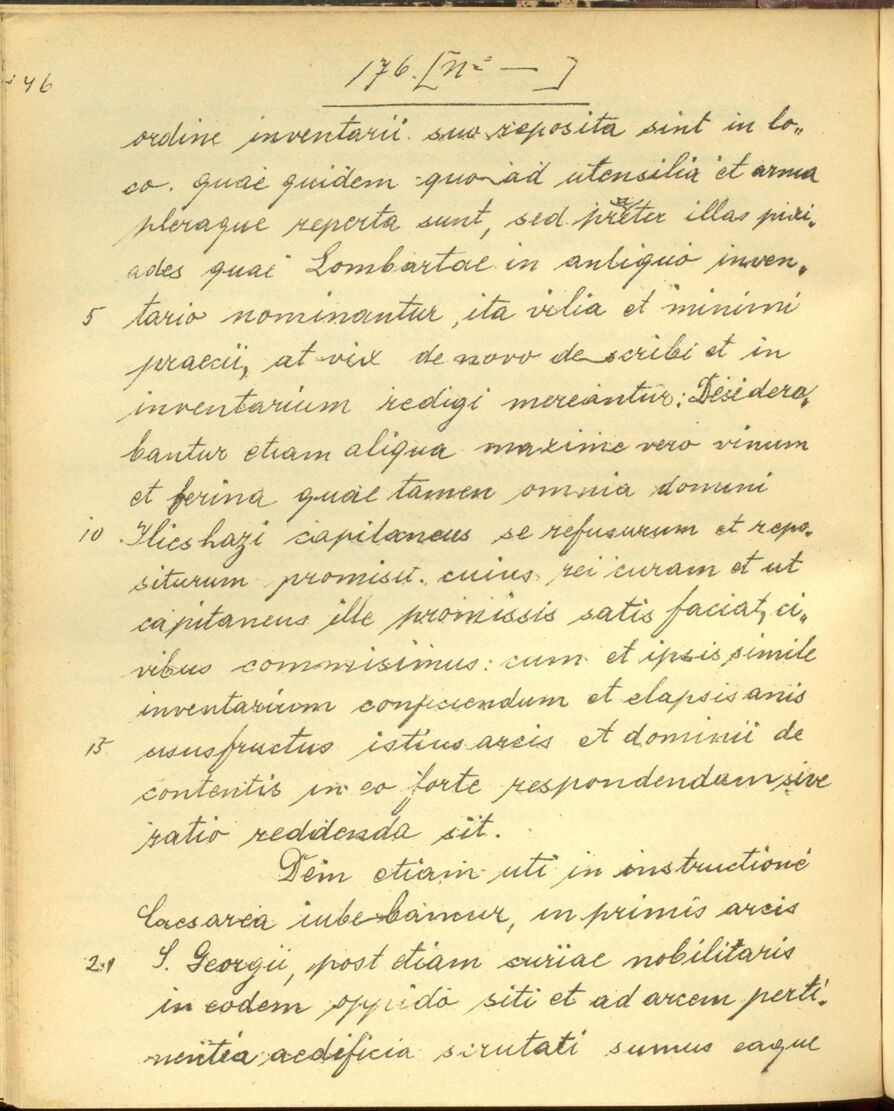 46
176. [Nº — ]
ordine inventarii suo reposita sint in lo„
co. quae quidem quo ad utensilia et arma
pleraque reperta sunt, sed præter illas pixi„
ades quae Lombartae in antiquo inven„
5 tario nominantur, ita vilia et minimi
praecii, at vix de novo describi et in
inventarium redigi mereantur: Desidera„
bantur etiam aliqua maxime vero vinum
et ferina quae tamen omnia domini
10 Ilieshazi capitaneus se refusurum et repo„
siturum promisit. cuius rei curam et ut
capitaneus ille promissis satis faciat, ci„
vibus commisimus: cum et ipsis simile
inventarium conficiendum et elapsis anis
15 ususfructus istius arcis et dominii de
contentis in eo forte respondendum sive
ratio reddenda sit.
Dein etiam uti in instructione
Caesarea iubebamur, in primis arcis
S. Georgii, post etiam curiae nobilitaris
in eodem oppido siti et ad arcem perti„
nentia aedificia scrutati sumus eaque